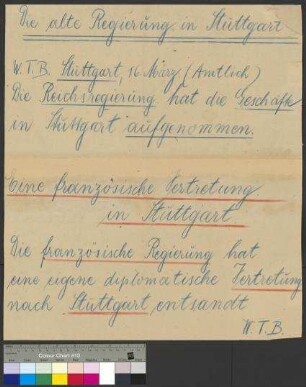 Die alte Regierung in Stuttgart
W.T.B. Stuttgart, 16. März (Amtlich)
Die Reichsregierung hat die Geschäfte
in Stuttgart aufgenommen.
Eine französische Vertretung
in Stuttgart
Die französische Regierung hat
eine eigene diplomatische Vertretung
nach Stuttgart entsandt
W.T.B.
Colour Chart #13